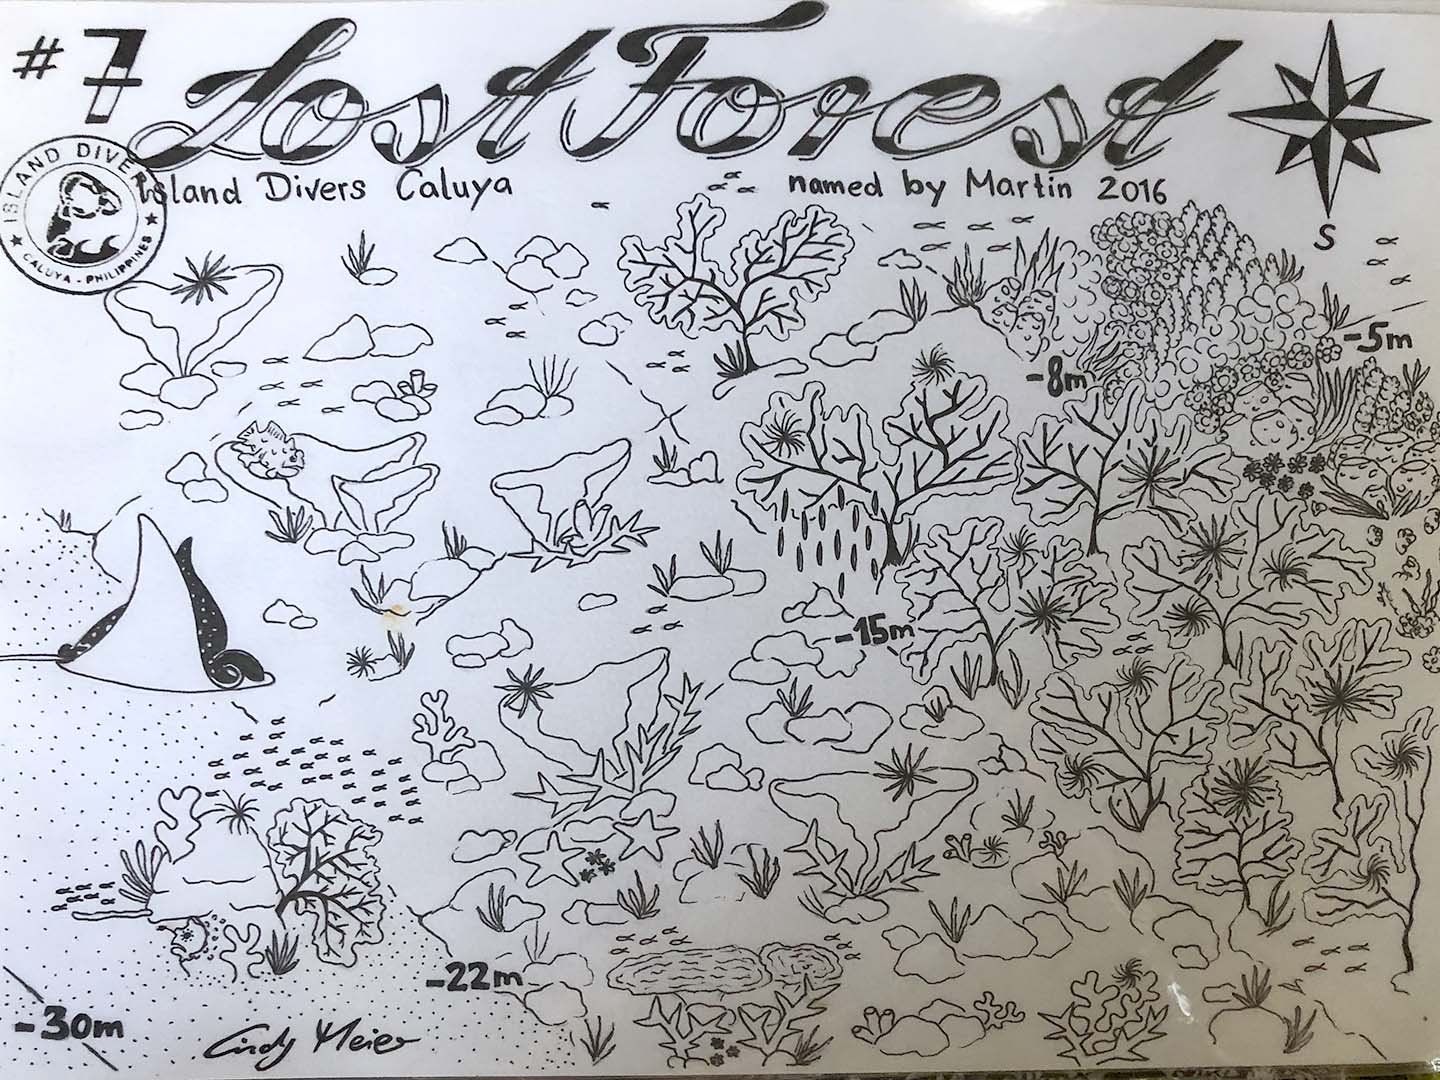 #7 Lost Forest
ISLAND DIVERS
CALUYA - PHILIPPINES
Island Divers Caluya
named by Martin 2016
S
-5m
-8m
-15m
-22m
-30m
Cindy Meier